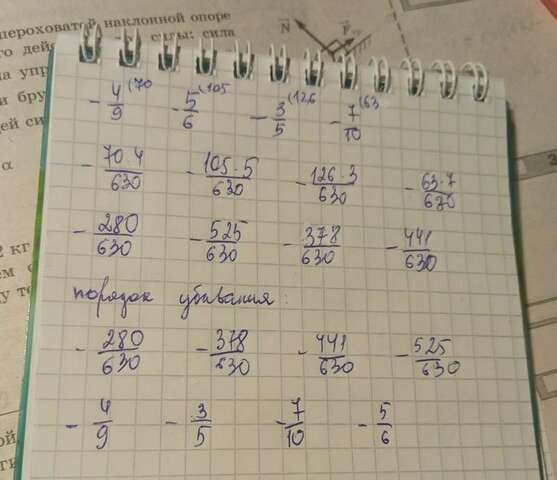 шероховатой наклонной опоре
силы: сила
N F
на упр
и бру
ей си
α
2 кг
ем
у те
- 4/9 (70 - 5/6 (105 - 3/5 (126 - 7/10 (63
- 70·4/630 - 105·5/630 - 126·3/630 - 63·7/630
- 280/630 - 525/630 - 378/630 - 441/630
порядок убывания:
- 280/630 - 378/630 - 441/630 - 525/630
- 4/9 - 3/5 - 7/10 - 5/6
3
ой,